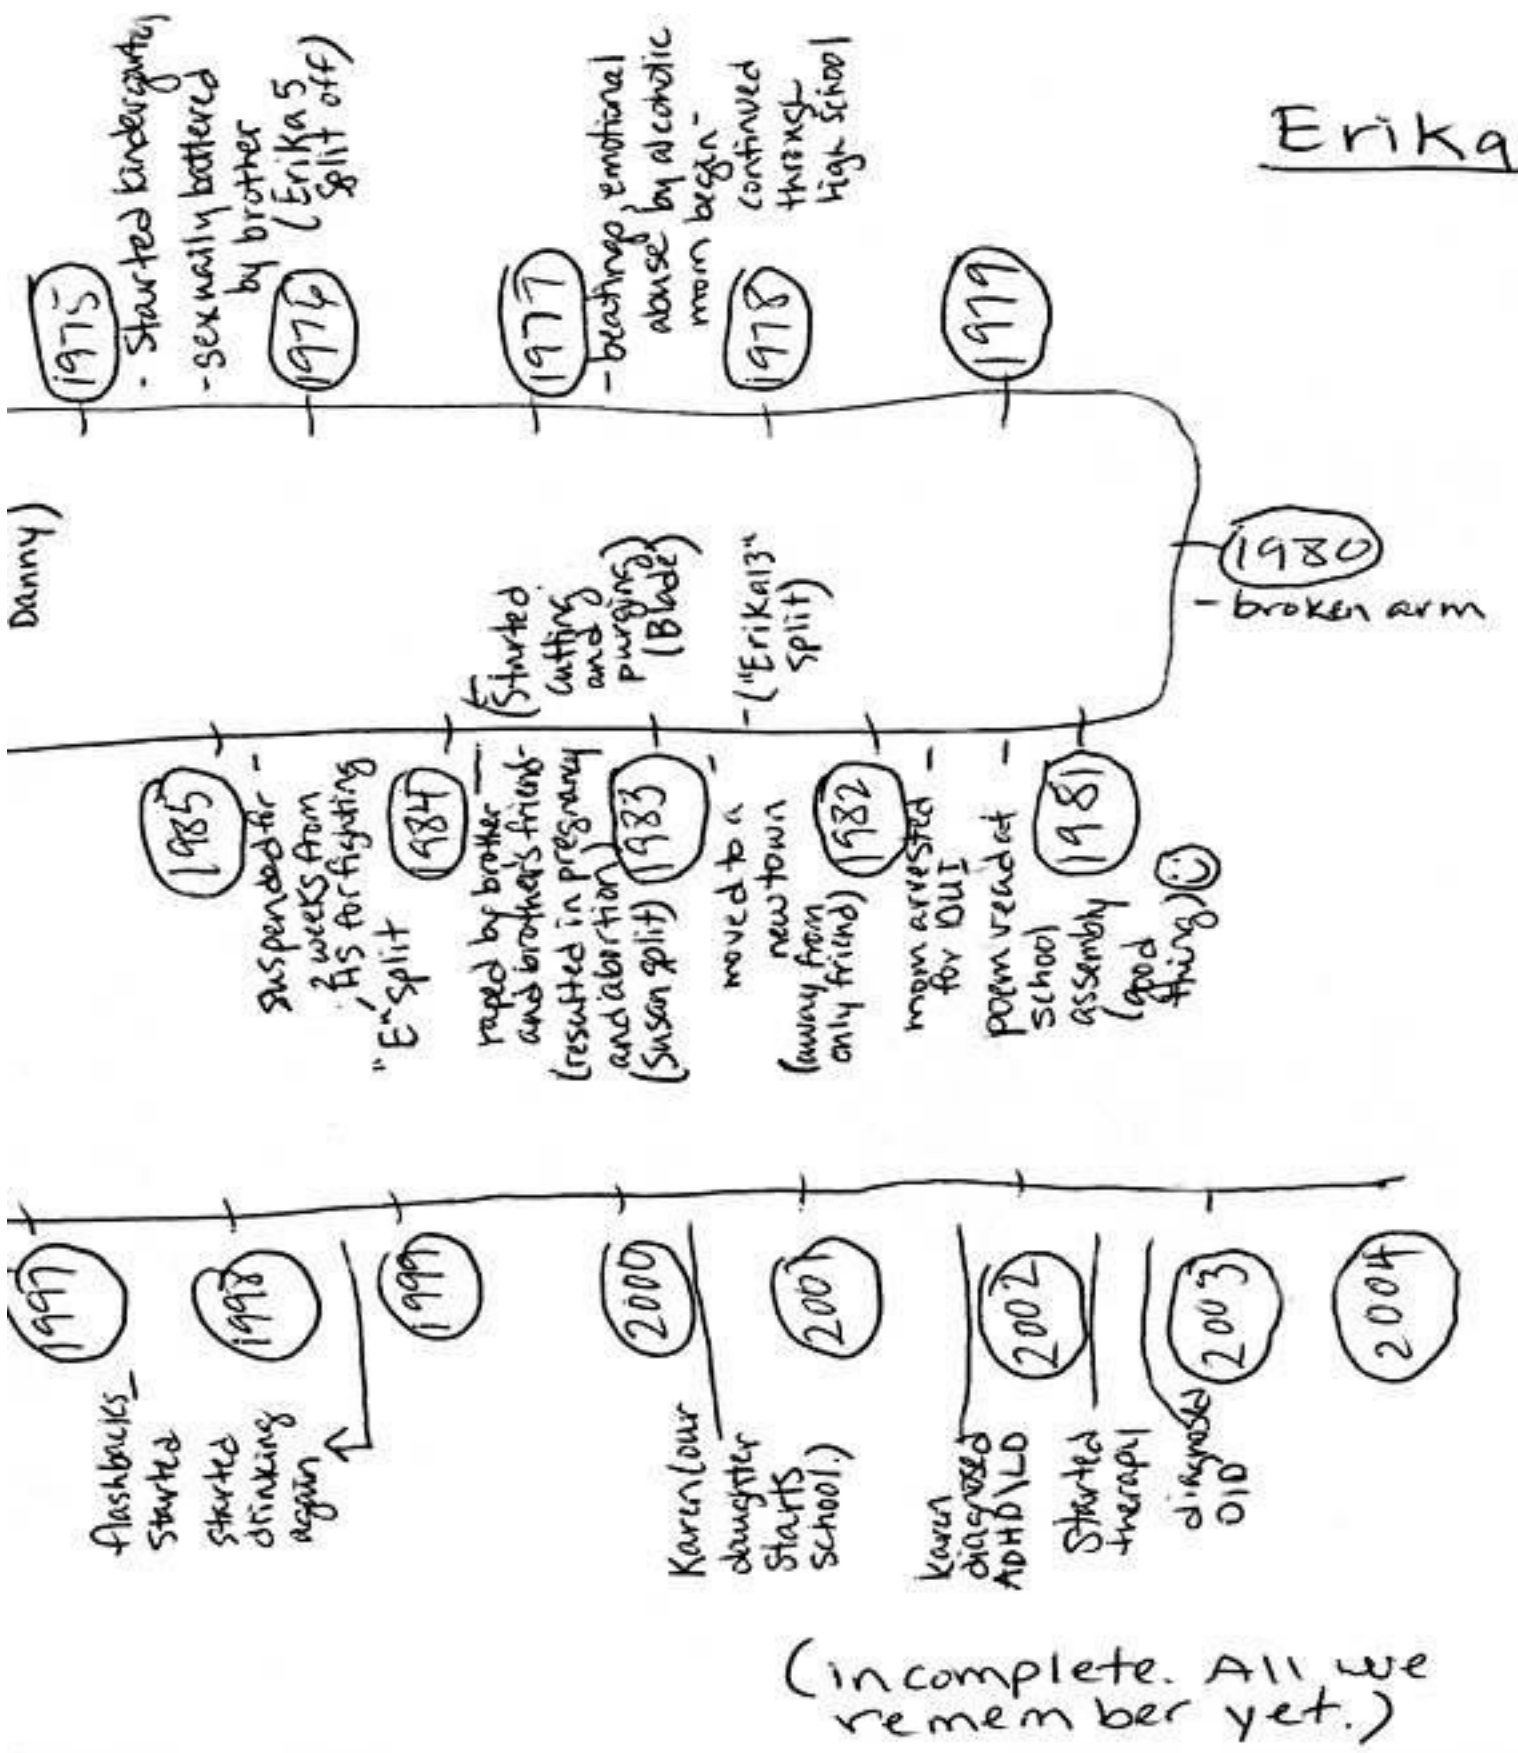 Erika
1975
- Started kindergarten
- sexually battered
by brother
1976
(Erika 5
split off)
1977
- beatings, emotional
abuse by alcoholic
mom begin -
1978
continued
through
high school
1979
1980
- broken arm
1981
poem read at -
school
assembly
(good
thing)
mom arrested -
for DUI
1982
- ("Erika13"
split)
moved to a -
new town
(away from
only friend)
1983
(Started
cutting
and
purging)
(Blade)
raped by brother -
and brother's friend -
(resulted in pregnancy
and abortion)
(Susan split)
1984
suspended for -
2 weeks from
HS for fighting
"E" split
1985
Danny)
1997
flashbacks -
started
1998
started
drinking
again
1999
2000
Karen (our
daughter
starts
school.)
2001
Karen
diagnosed
ADHD\LD
2002
Started
therapy
diagnosed
DID
2003
2004
(incomplete. All we
remember yet.)